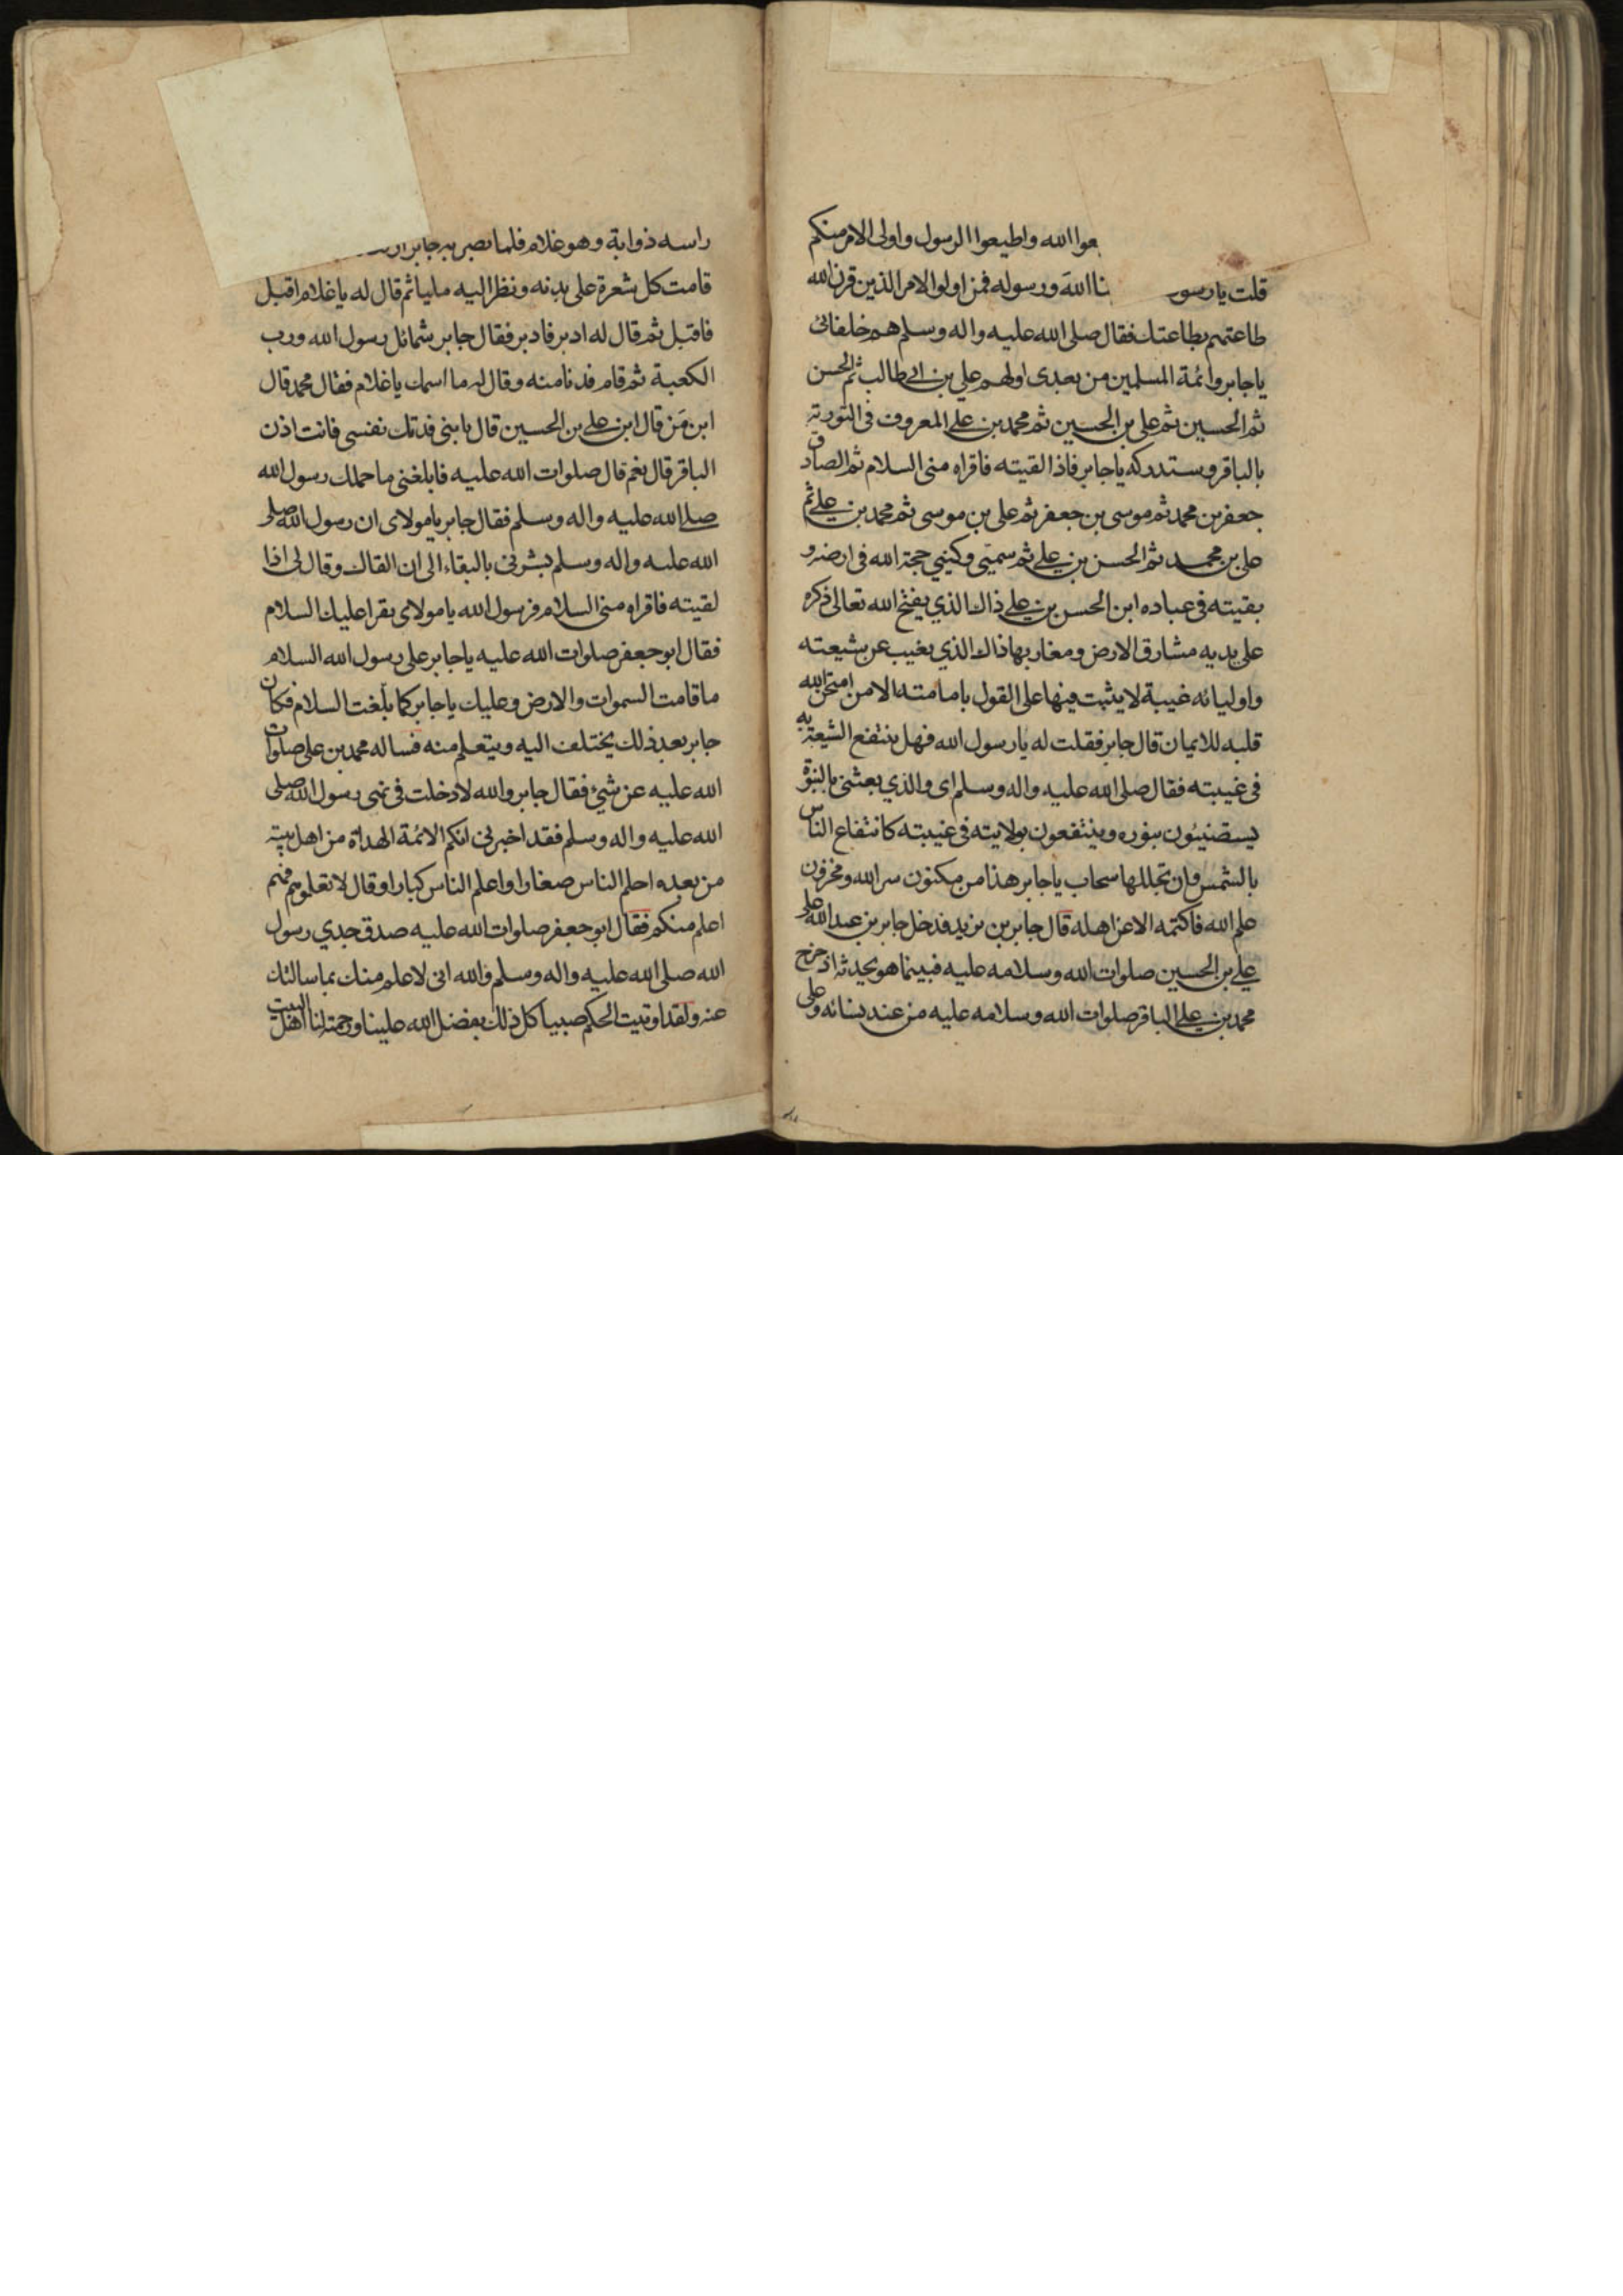 عوا الله واطيعوا الرسول واولى الامر منكم
قلت يا رسو نا الله ورسوله فمن اولوا الامر الذين قرن الله
طاعتهم بطاعتك فقال صلى الله عليه واله وسلم هم خلفائى
يا جابر وائمة المسلمين من بعدى اولهم على بن ابى طالب ثم الحسن
ثم الحسين ثم على بن الحسين ثم محمد بن على المعروف فى التورية
بالباقر وستدركه يا جابر فاذا لقيته فاقراه منى السلام ثم الصادق
جعفر بن محمد ثم موسى بن جعفر ثم على بن موسى ثم محمد بن على ثم
على بن محمد ثم الحسن بن على ثم سميّى وكنيى حجة الله فى ارضه و
بقيته فى عباده ابن الحسن بن على ذاك الذي يفتح الله تعالى ذكره
على يديه مشارق الارض ومغاربها ذاك الذي يغيب عن شيعته
واوليائه غيبة لا يثبت فيها على القول بامامته الا من امتحن الله
قلبه للايمان قال جابر فقلت له يا رسول الله فهل ينتفع الشيعة به
فى غيبته فقال صلى الله عليه واله وسلم اى والذي بعثنى بالنبوة
يستضيئون بنوره وينتفعون بولايته فى غيبته كانتفاع الناس
بالشمس وان تجللها سحاب يا جابر هذا من مكنون سر الله ومخزون
علم الله فاكتمه الا عن اهله قال جابر بن يزيد فدخل جابر بن عبد الله على
على بن الحسين صلوات الله وسلامه عليه فبينما هو يحدثه اذ خرج
محمد بن على الباقر صلوات الله وسلامه عليه من عند نسائه وعلى
راسه ذوابة وهو غلام فلما بصر به جابر
قامت كل شعرة على بدنه ونظر اليه مليا ثم قال له يا غلام اقبل
فاقبل ثم قال له ادبر فادبر فقال جابر شمائل رسول الله ورب
الكعبة ثم قام فدنا منه وقال له ما اسمك يا غلام فقال محمد قال
ابن مَن قال ابن على بن الحسين قال يا بنى فدتك نفسى فانت اذن
الباقر قال نعم قال صلوات الله عليه فابلغنى ما حملك رسول الله
صلى الله عليه واله وسلم فقال جابر يا مولاى ان رسول الله صلى
الله عليه واله وسلم بشرنى بالبقاء الى ان القاك وقال لى اذا
لقيته فاقراه منى السلام فرسول الله يا مولاى يقرا عليك السلام
فقال ابو جعفر صلوات الله عليه يا جابر على رسول الله السلام
ما قامت السموات والارض وعليك يا جابر كما بلّغت السلام فكان
جابر بعد ذلك يختلف اليه ويتعلم منه فساله محمد بن على صلوات
الله عليه عن شىء فقال جابر والله لا دخلت فى نهى رسول الله صلى
الله عليه واله وسلم فقد اخبرنى انكم الائمة الهداة من اهل بيته
من بعده احلم الناس صغارا واعلم الناس كبارا وقال لا تعلموهم فهم
اعلم منكم فقال ابو جعفر صلوات الله عليه صدق جدي رسول
الله صلى الله عليه واله وسلم والله انى لاعلم منك بما سالتك
عنه ولقد اوتيت الحكم صبيا كل ذلك بفضل الله علينا ورحمته لنا اهل البيت